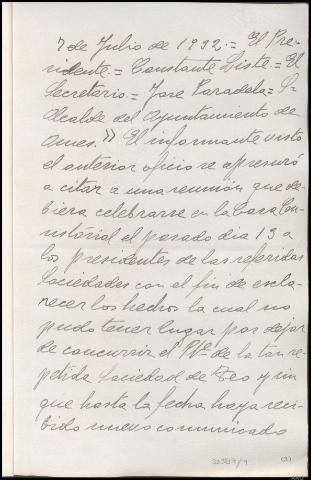 7 de Julio de 1932.= El Pre-
sidente.= Constante Liste.= El
Secretario.= Jose Paradela= Sr
Alcalde del Ayuntamiento de
Ames.>> El informante visto
el anterior oficio se apresuró
a citar a una reunión que de-
biera celebrarse en la Casa Con-
sistorial el pasado dia 13 a
los presidentes de las referidas
Sociedades con el fin de escla-
recer los hechos la cual no
pudo tener lugar por dejar
de concurrir el Pte de la tan re-
petida Sociedad de Teo y sin
que hasta la fecha haya reci-
bido nuevo comunicado
32587/1 (3)